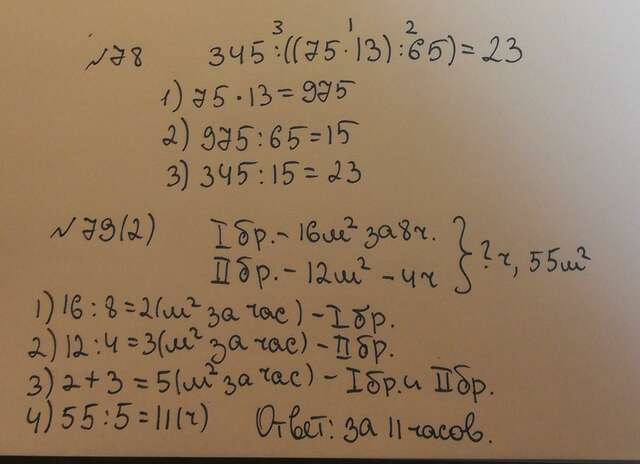 3 1 2
№78 345:((75·13):65)=23
1) 75·13=975
2) 975:65=15
3) 345:15=23
№79(2) I бр.- 16м² за 8ч.
II бр.- 12м² - 4ч } ? ч, 55м²
1) 16:8=2(м² за час) - I бр.
2) 12:4=3(м² за час) - II бр.
3) 2+3=5(м² за час) - I бр. и II бр.
4) 55:5=11(ч) Ответ: за 11 часов.